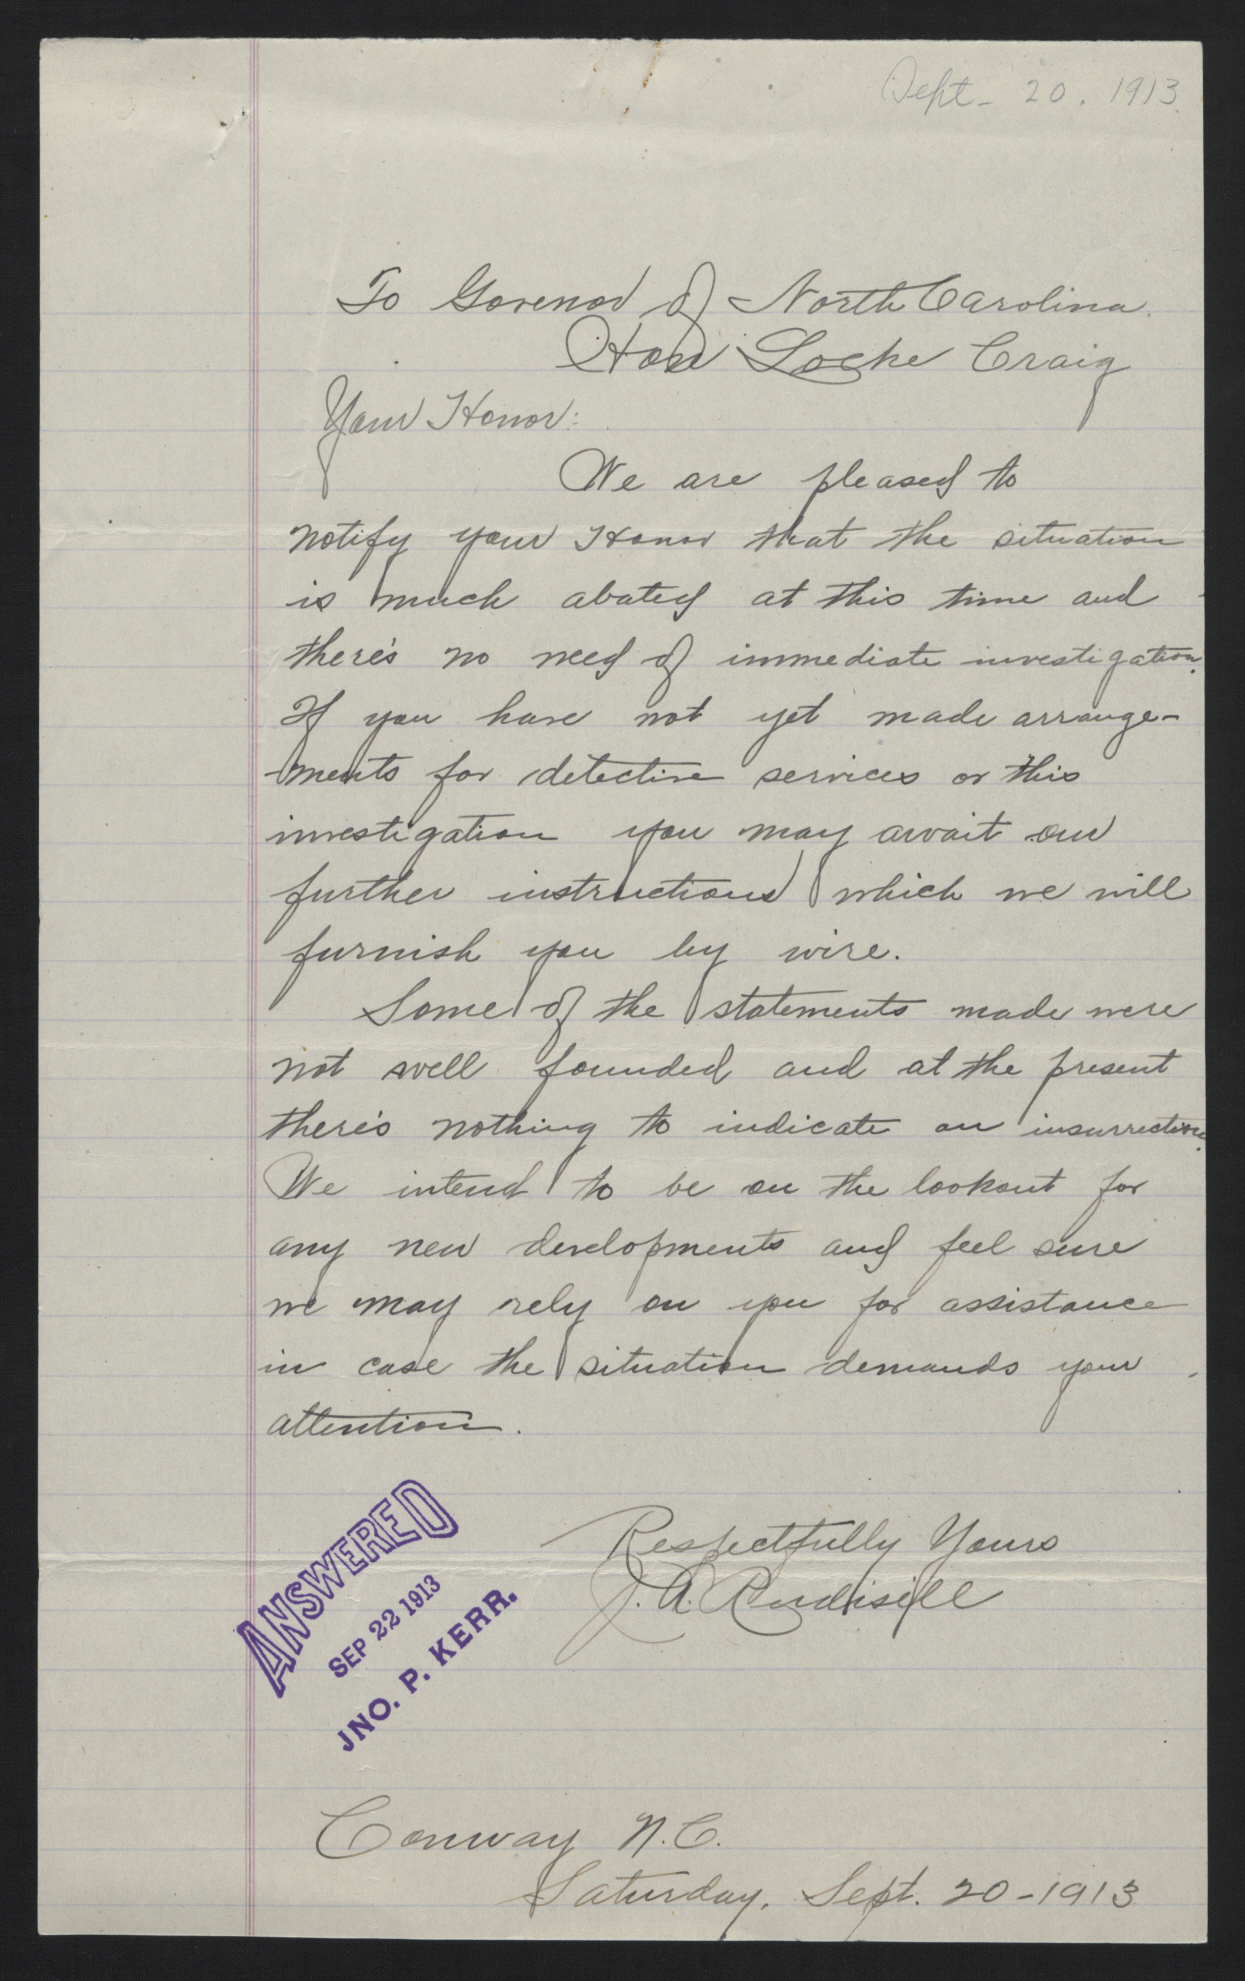 Sept- 20. 1913.
To Govenor of North Carolina.
Hon Locke Craig
Your Honor:
We are pleased to
notify your Honor that the situation
is much abated at this time and
there's no need of immediate investigation.
If you have not yet made arrange-
ments for detective services or this
investigation you may await our
further instructions which we will
furnish you by wire.
Some of the statements made were
not well founded and at the present
there's nothing to indicate an insurrection.
We intend to be on the lookout for
any new developments and feel sure
we may rely on you for assistance
in case the situation demands your
attention.
Respectfully Yours
J. A. Rudisill
ANSWERED
SEP 22 1913
JNO. P. KERR.
Conway N.C.
Saturday, Sept. 20-1913